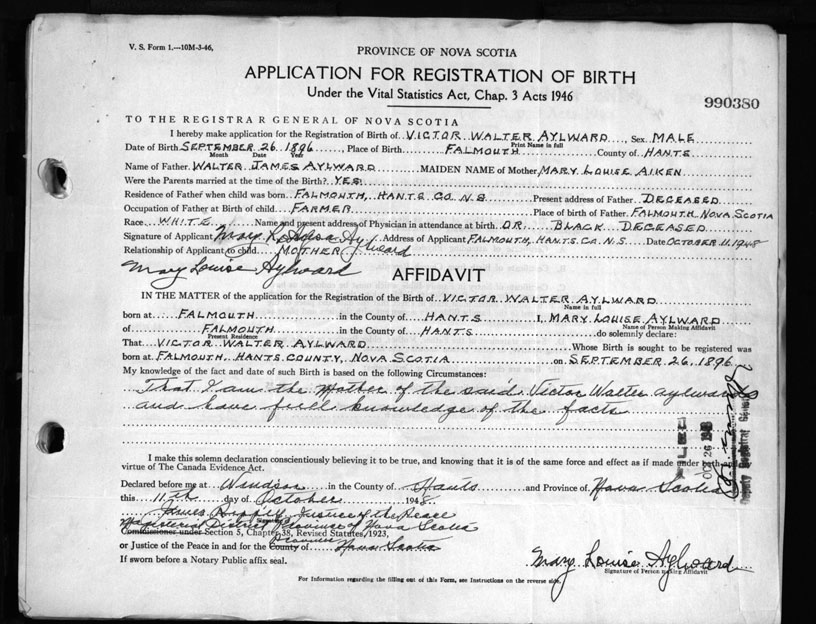 V. S. Form 1.—10M-3-46,
PROVINCE OF NOVA SCOTIA
APPLICATION FOR REGISTRATION OF BIRTH
Under the Vital Statistics Act, Chap. 3 Acts 1946
990380
TO THE REGISTRAR GENERAL OF NOVA SCOTIA
I hereby make application for the Registration of Birth of VICTOR WALTER AYLWARD, Sex MALE
Print Name in full
Date of Birth SEPTEMBER 26 1896, Place of Birth FALMOUTH County of HANTS
Month Date Year
Name of Father WALTER JAMES AYLWARD MAIDEN NAME of Mother MARY LOUISE AIKEN
Were the Parents married at the time of the Birth? YES
Residence of Father when child was born FALMOUTH, HANTS CO. N S Present address of Father DECEASED
Occupation of Father at Birth of child FARMER Place of birth of Father FALMOUTH NOVA SCOTIA
Race WHITE Name and present address of Physician in attendance at birth DR. BLACK DECEASED
Signature of Applicant Mary Aylward Address of Applicant FALMOUTH, HANTS. CO. N. S Date OCTOBER 11, 1948
Relationship of Applicant to child MOTHER
Mary Louise Aylward
AFFIDAVIT
IN THE MATTER of the application for the Registration of the Birth of VICTOR WALTER AYLWARD
Name in full
born at FALMOUTH in the County of HANTS I, MARY LOUISE AYLWARD
Name of Person Making Affidavit
of FALMOUTH in the County of HANTS do solemnly declare:
Present Residence
That VICTOR WALTER AYLWARD Whose Birth is sought to be registered was
born at FALMOUTH, HANTS COUNTY, NOVA SCOTIA on SEPTEMBER 26, 1896
My knowledge of the fact and date of such Birth is based on the following Circumstances:
That I am the Mother of the said Victor Walter Aylward
and have full knowledge of the facts
FILED
OCT 26 1948
Deputy Registrar General
I make this solemn declaration conscientiously believing it to be true, and knowing that it is of the same force and effect as if made under oath and
virtue of The Canada Evidence Act.
Declared before me at Windsor in the County of Hants and Province of Nova Scotia
this 11th day of October 1948.
James Justice of the Peace
Magisterial District Province of Nova Scotia
Commissioner under Section 5, Chapter 38, Revised Statutes, 1923,
Province
or Justice of the Peace in and for the County of Nova Scotia
If sworn before a Notary Public affix seal.
Mary Louise Aylward
Signature of Person making Affidavit
For Information regarding the filling out of this Form, see Instructions on the reverse side